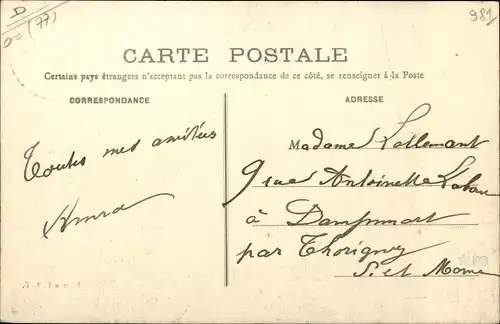 D = (77)
981
CARTE POSTALE
Certains pays étrangers n'acceptant pas la correspondance de ce côté, se renseigner à la Poste
CORRESPONDANCE
ADRESSE
Toutes mes amitiés
Madame Lallemant
9 rue Antoinette
à Dampmart
par Thorigny
S. et Marne